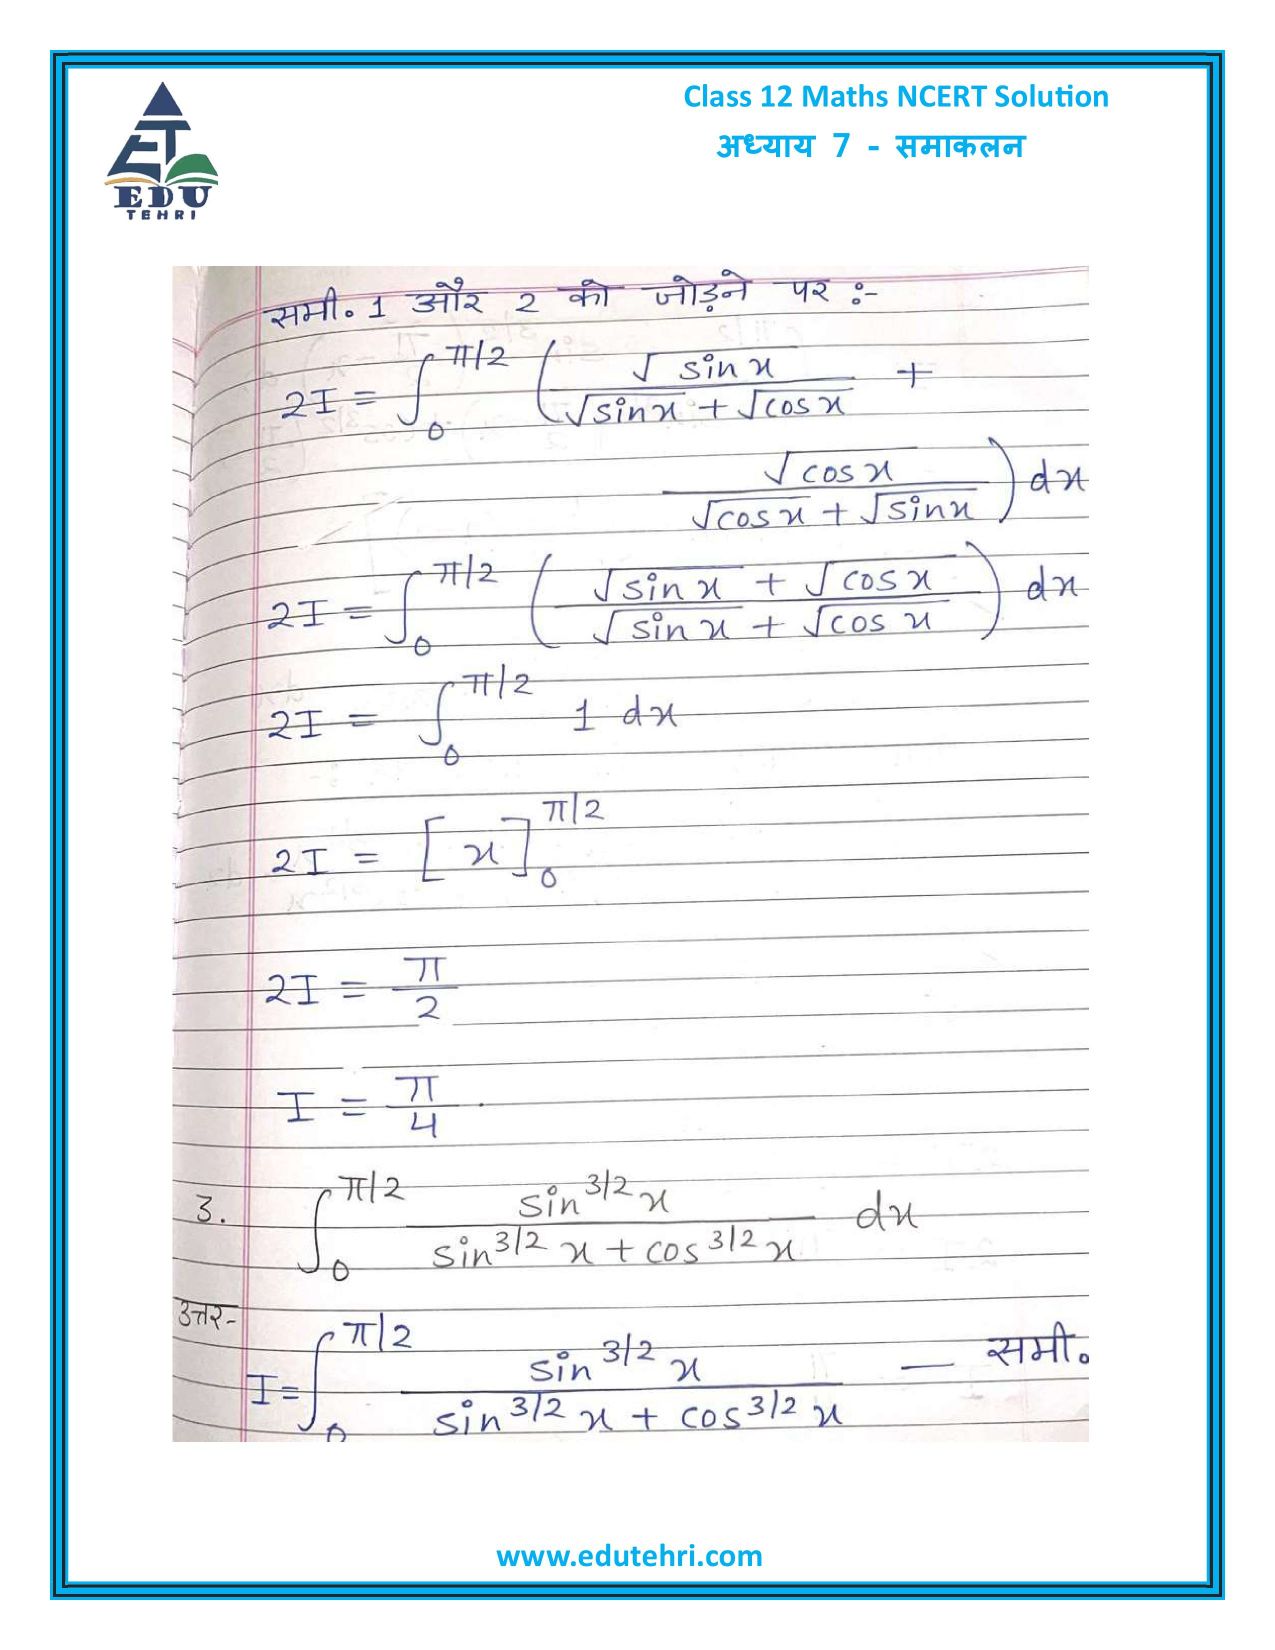 EDU
TEHRI
Class 12 Maths NCERT Solution
अध्याय 7 - समाकलन
समी. 1 और 2 को जोड़ने पर :-
2I = ∫₀^π/2 ( √sin x / (√sin x + √cos x) +
√cos x / (√cos x + √sin x) ) dx
2I = ∫₀^π/2 ( (√sin x + √cos x) / (√sin x + √cos x) ) dx
2I = ∫₀^π/2 1 dx
2I = [x]₀^π/2
2I = π/2
I = π/4
3. ∫₀^π/2 sin^3/2 x / (sin^3/2 x + cos^3/2 x) dx
उत्तर-
I = ∫₀^π/2 sin^3/2 x / (sin^3/2 x + cos^3/2 x) — समी.
www.edutehri.com